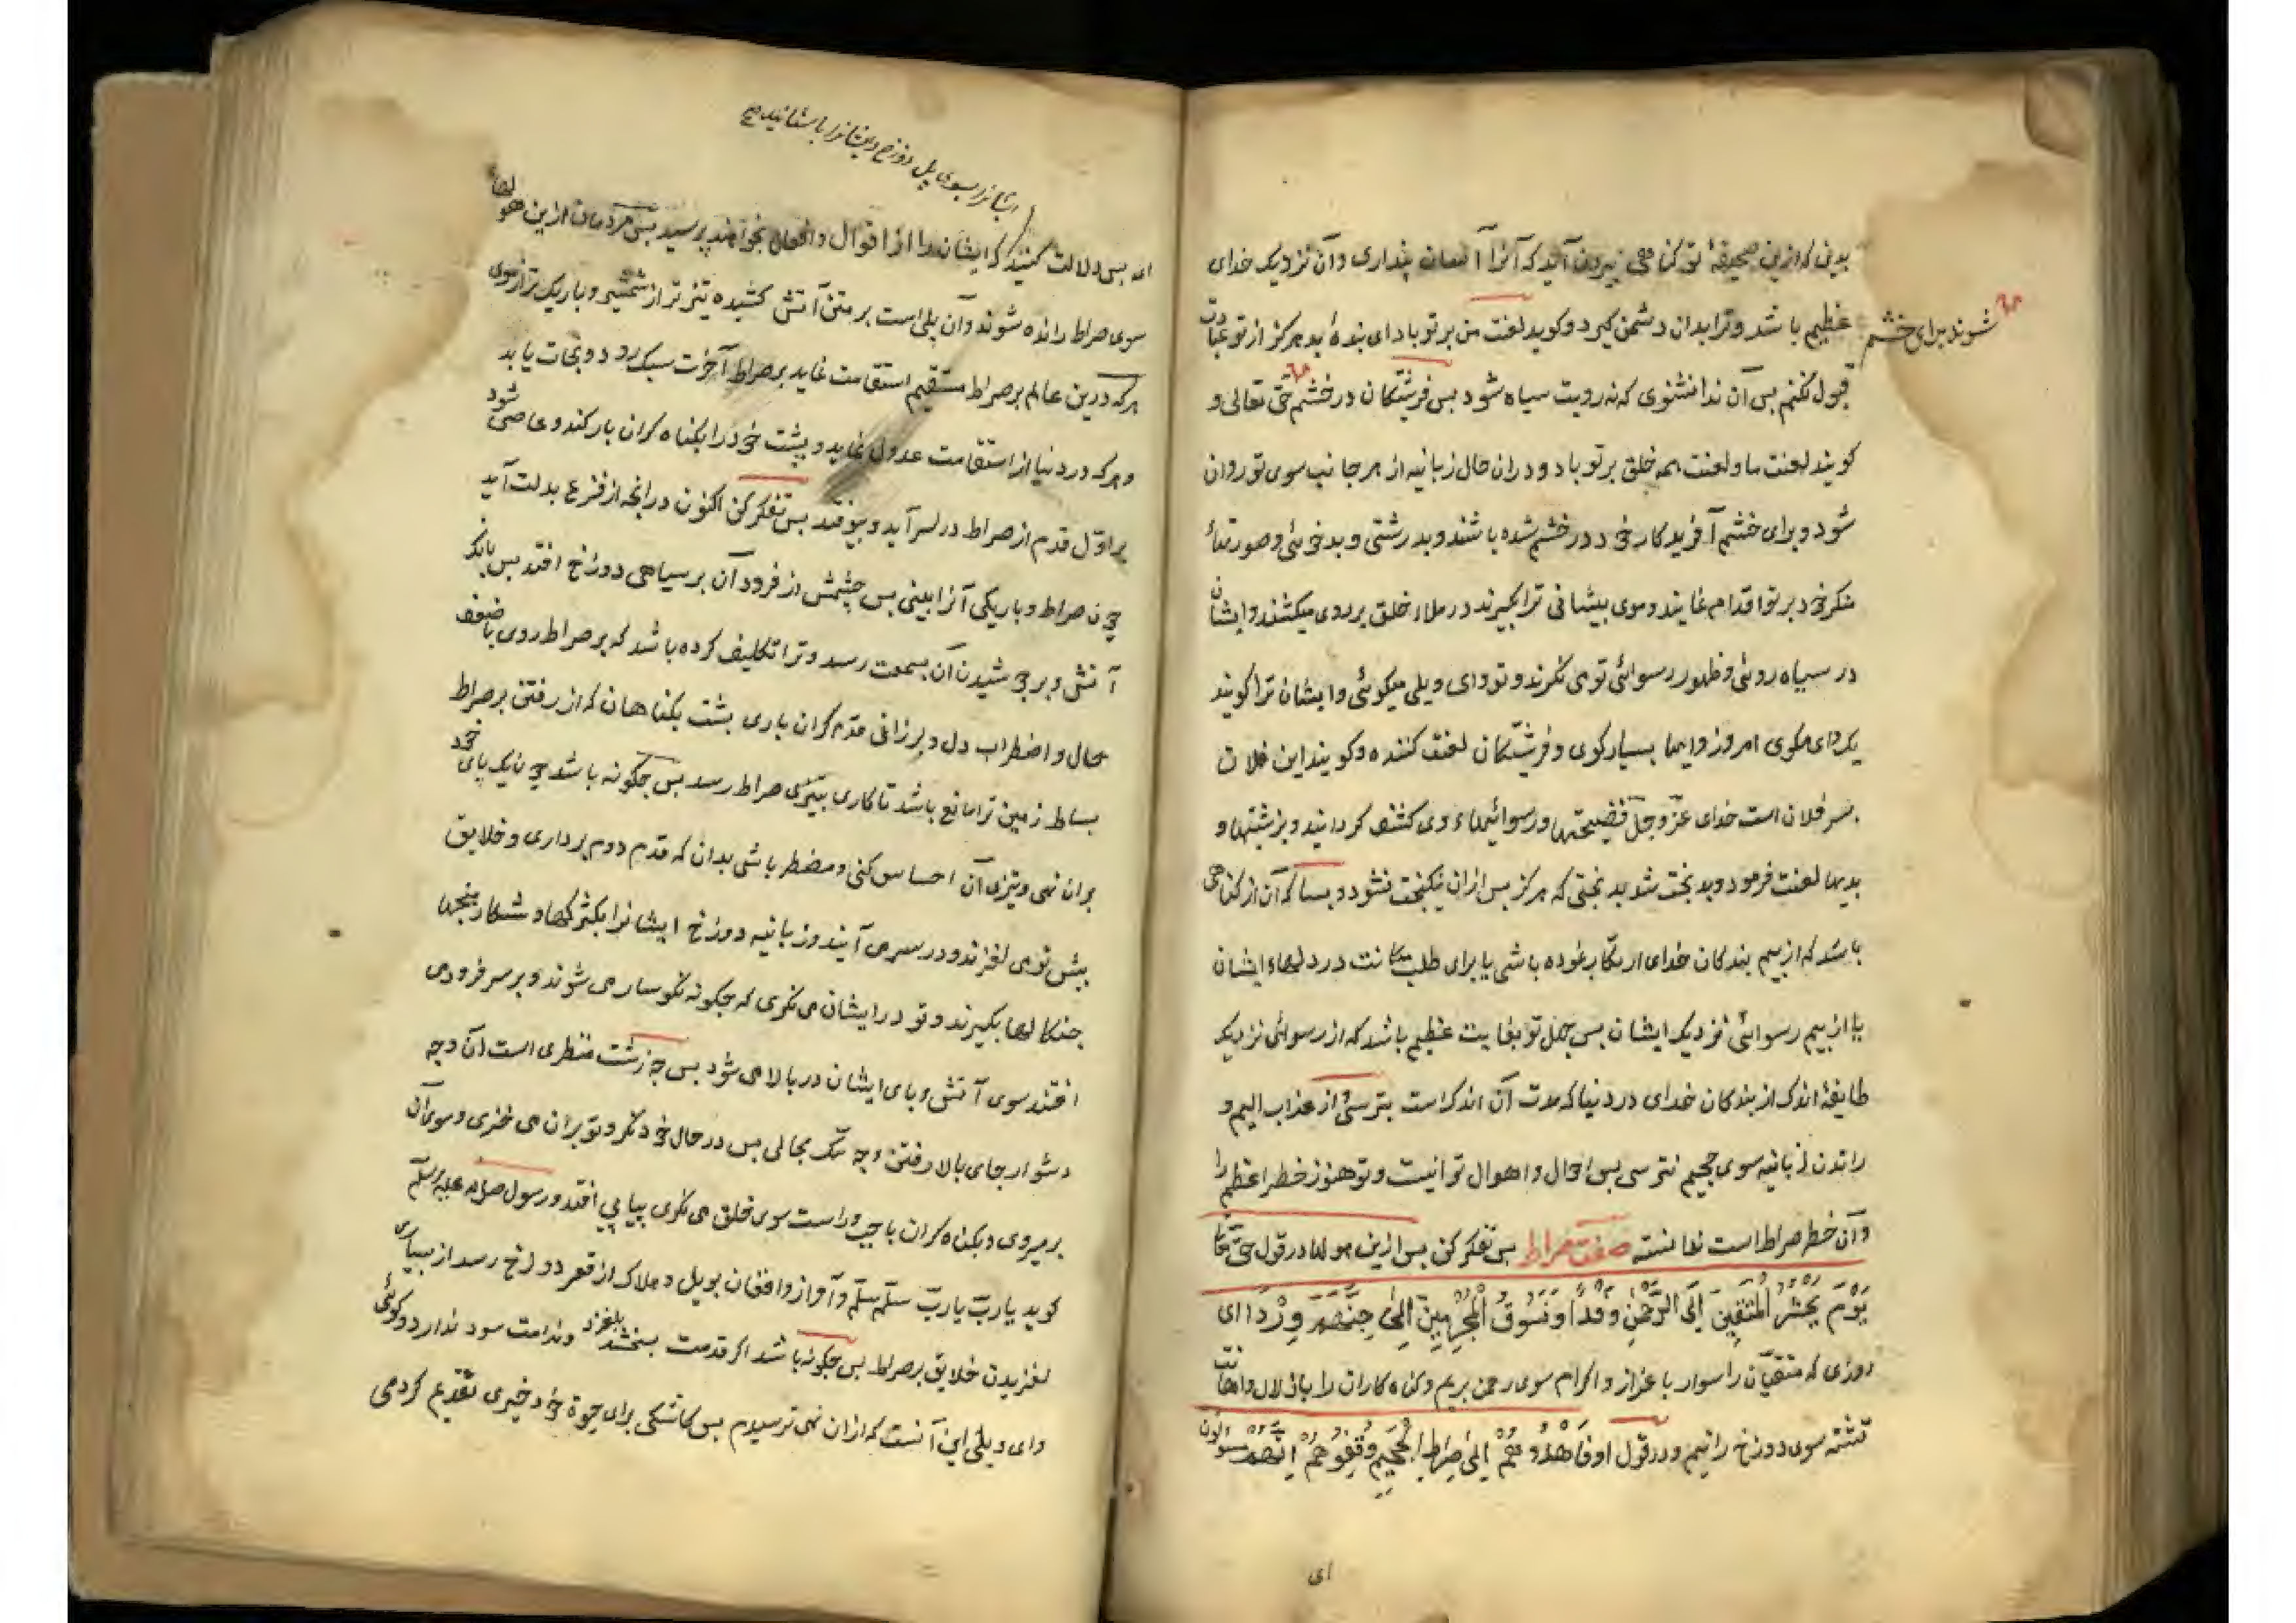 بدین که ازین صحیفهٔ تو کناهی بیرون آید که آنرا آسان پنداری وآن نزدیک خدای
عظیم باشد وترا بدان دشمن کیرد وکوید لعنت من بر تو باد ای بندهٔ بد هرکز از تو عبادت
شوند برای خشم
قبول نکنم بس آن ندا نشنوی که نه رویت سیاه شود بس فرشتکان در خشم حق تعالی و
کویند لعنت ما ولعنت همه خلق بر تو باد ودران حال زبانیه از هر جانب سوی تو روان
شود وبرای خشم آفریدکار خود در خشم شده باشند وبدرشتی وبدخوئی وصورتهاء
منکر خود بر تو اقدام نمایند وموی بیشانی ترا بکیرند در ملاء خلق بر روی میکشند وایشان
در سیاه روئی وظهور رسوائی تو می نکرند وتو وای ویلی میکوئی وایشان ترا کویند
یک وای مکوی امروز وایها بسیار کوی وفرشتکان لعنت کننده وکویند این فلان
بسر فلان است خدای عزّ وجلّ فضیحتها ورسوائیهاء وی کشف کردانید وبزشتیها و
بدیها لعنت فرمود وبدبخت شد بدبختی که هرکز بس ازان نیکبخت نشود وبسا که آن از کناهی
باشد که از بیم بندکان خدای ارتکاب نموده باشی یا برای طلب مکانت در دلهاء ایشان
یا از بیم رسوائی نزدیک ایشان بس جهل تو بغایت عظیم باشد که از رسوائی نزدیک
طایفهٔ اندک از بندکان خدای در دنیا که مدت آن اندک است بترسی واز عذاب الیم و
راندن زبانیه سوی جحیم نترسی بس احوال واهوال تو اینست وتو هنوز خطر اعظم را
وآن خطر صراط است ندانسته صفت صراط بس تفکر کن بس ازین هولها در قول حق تعالی
یَوْمَ نَحْشُرُ الْمُتَّقِینَ اِلَی الرَّحْمٰنِ وَفْدًا وَنَسُوقُ الْمُجْرِمِینَ اِلیٰ جَهَنَّمَ وِرْدًا ای
روزی که متقیان را سوار باعزاز واکرام سوی رحمن بریم وکناه کاران را باذلال واهانت
تشنه سوی دوزخ رانیم ودر قول او فَاهْدُوهُمْ اِلیٰ صِرَاطِ الْجَحِیمِ وَقِفُوهُمْ اِنَّهُمْ مَسْئُولُونَ
ای
ایشانرا بسوی پل دوزخ وایشانرا باستانید صح
ای بس دلالت کنید که ایشانرا از اقوال وافعال بخواهند پرسید بس مردمان ازین هولها
سوی صراط رانده شوند وآن پلی است بر متن آتش کشیده تیزتر از شمشیر وباریک تر از موی
هرکه درین عالم بر صراط مستقیم استقامت نماید بر صراط آخرت سبک رود ونجات یابد
وهرکه در دنیا از استقامت عدول نماید وپشت خود را بکناه کران بار کند وعاصی شود
بر اوّل قدم از صراط در سر آید وبیوفتد بس تفکر کن اکنون در انچه از فزع بدلت آید
چون صراط وباریکی آنرا بینی بس چشمش از فرود آن بر سیاهی دوزخ افتد بس بانک
آتش وبر جوشیدن آن بسمعت رسد وترا تکلیف کرده باشد که بر صراط روی با ضعف
حال واضطراب دل ولرزانی قدم کران باری بشت بکناهان که از رفتن بر صراط
بساط زمین ترا مانع باشد تا کاری بتیزی صراط رسد بس چکونه باشد چون یک پای خود
بران نهی وتیزی آن احساس کنی ومضطر باشی بدان که قدم دوم برداری وخلایق
بیش تو می لغزند ودر سر می آیند وزبانیه دوزخ ایشانرا بکژکها وشکار
چنکالها بکیرند وتو در ایشان می نکری که چکونه نکوسار می شوند وبر سر فرود می
افتند سوی آتش وپای ایشان در بالا می شود بس چه زشت منظری است آن وچه
دشوار جای بالا رفتن وچه تنک مجالی بس در حال خود نکر وتو بران می خزی وسوی آن
بر میروی وبکناه کران با چپ وراست سوی خلق می نکری پیاپی افتد ورسول صلی الله علیه وسلّم
کوید یاربّ یاربّ سلّم سلّم وآواز وافغان بویل وهلاک از قعر دوزخ رسد از بسیاری
لغزیدن خلایق بر صراط بس چکونه باشد اکر قدمت بلغزد وندامت سود ندارد وکوئی
وای ویلی این آنست که ازان می ترسیدم بس کاشکی برای حیوة خود خیری تقدیم کردمی